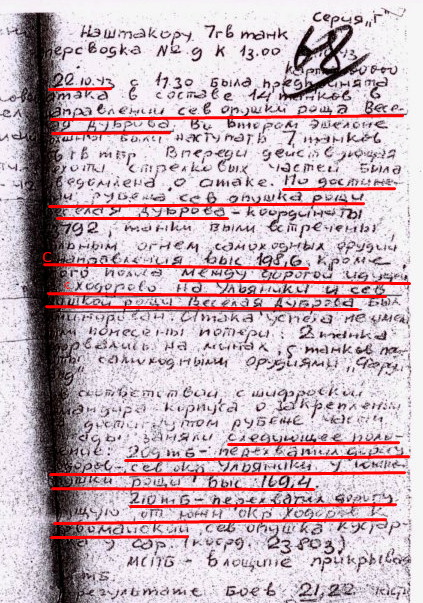 Серия „Г"
Наштакору 7гв танк
персводка № д к 13.00
68
22.10.43 с 11.30 была предпринята
атака в составе 14 танков в
направлении сев опушки роща Весе-
ая Дуброва. Во втором эшелоне
лжны были наступать 7 танков
гв тбр. Впереди действующая
хоты стрелковых частей была
ведомлена о атаке. По достиже-
рубежа сев опушка рощи
еселая Дуброва - координаты
8792, танки были встречены
льным огнем самоходных орудий
С направления выс 198,6. кроме
ного поля между дорогой идущи
Ходорово на Ульяники и сев
ушкой рощи Веселая Дуброва был
минирован. Атака успеха не имел
понесены потери: 2 танка
орвались на минах, 5 танков
ты самоходными орудиями „Ферди
д"
В соответствии с шифровкой
мандира корпуса о закреплении
достигнутом рубеже части
ады заняли следующее поло-
ние: 209 тБ - перехватил дорогу
одоров - сев окр Ульяники у южн
ушки рощи выс. 169,4.
210 тБ - перехватил дорогу
ущую от южн окр Ходоров к
сев опушка кустар-
ка у сар. (коорд. 23803)
МСПБ - в лощине прикрывая
тБ
результате боев 21,22